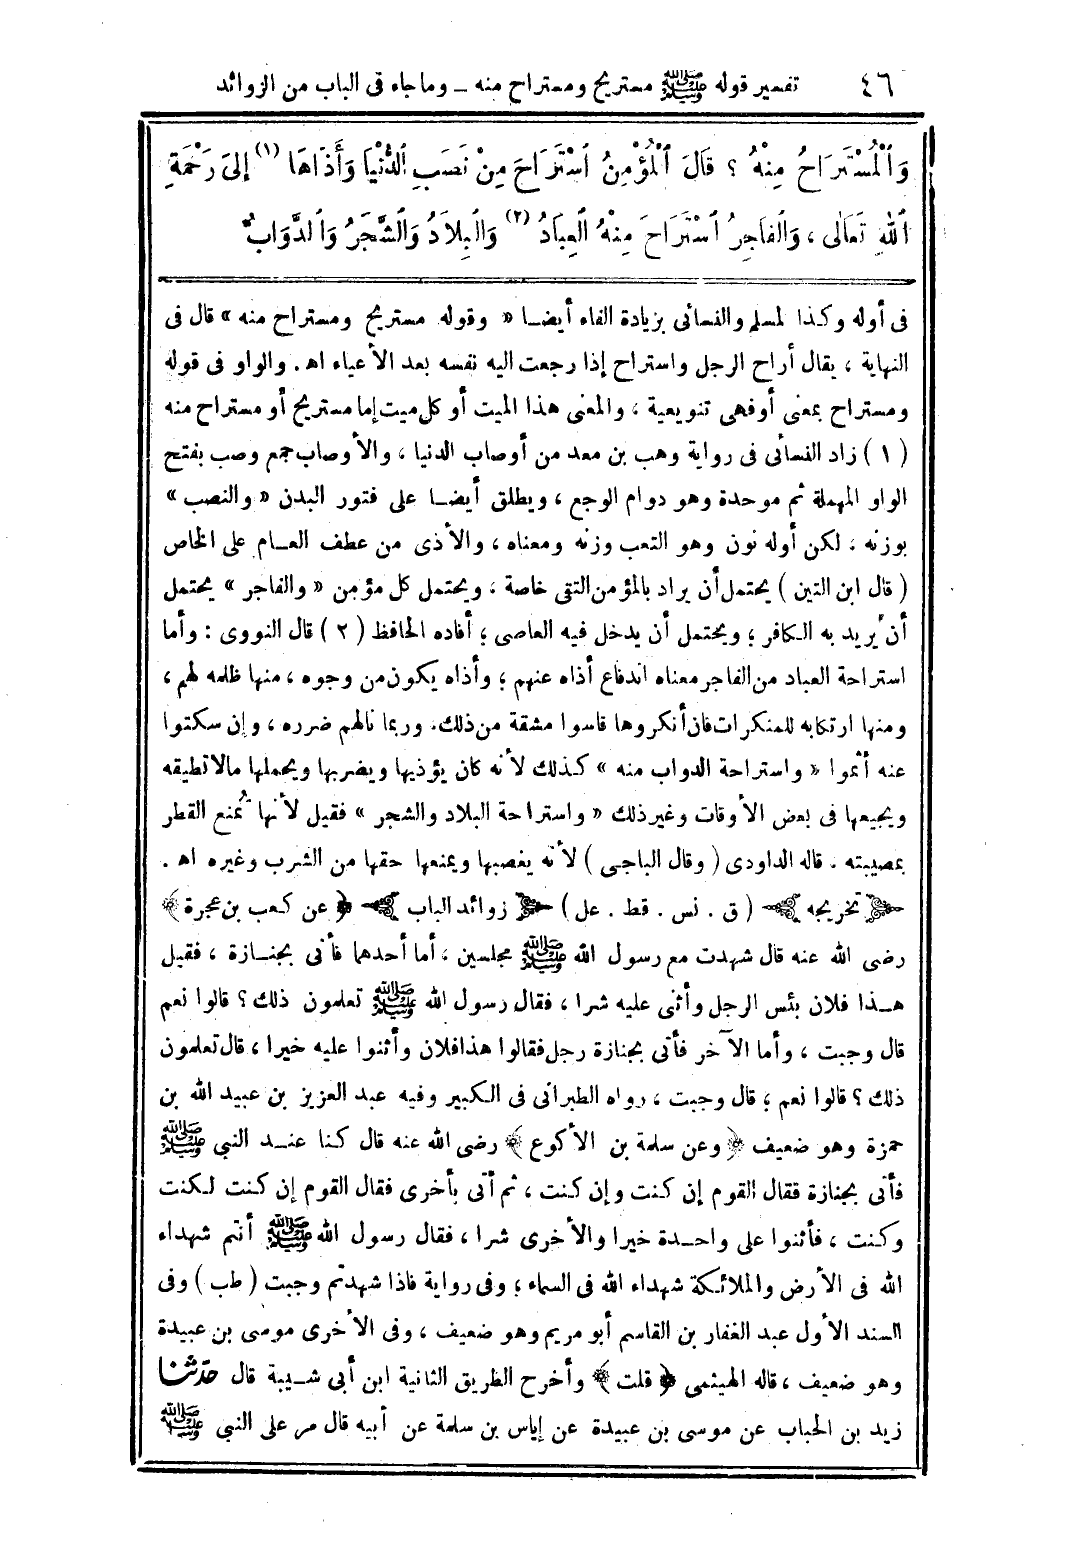 ٤٦ تفسير قوله ﷺ مستريح ومستراح منه ــ وما جاء فى الباب من الزوائد
وَٱلْمُسْتَرَاحُ مِنْهُ ؟ قَالَ ٱلْمُؤْمِنُ ٱسْتَرَاحَ مِنْ نَصَبِ ٱلدُّنْيَا وَأَذَاهَا (١) إِلىَ رَحْمَةِ
ٱللهِ تَعَالَى ، وَٱلفَاجِرُ ٱسْتَرَاحَ مِنْهُ ٱلعِبَادُ (٢) وَٱلبِلاَدُ وَٱلشَّجَرُ وَٱلدَّوَابُّ
فى أوله وكذا لمسلم والنسائى بزيادة الفاء أيضا « وقوله مستريح ومستراح منه » قال فى
النهاية ، يقال أراح الرجل واستراح إذا رجعت اليه نفسه بعد الأعياء اهـ . والواو فى قوله
ومستراح بمعنى أو فهى تنويعية ، والمعنى هذا الميت أو كل ميت إما مستريح أو مستراح منه
( ١ ) زاد النسائى فى رواية وهب بن معد من أوصاب الدنيا ، والأوصاب جمع وصب بفتح
الواو المهملة ثم موحدة وهو دوام الوجع ، ويطلق أيضا على فتور البدن « والنصب »
بوزنه ، لكن أوله نون وهو التعب وزنه ومعناه ، والأذى من عطف العام على الخاص
( قال ابن التين ) يحتمل أن يراد بالمؤمن التقى خاصة ، ويحتمل كل مؤمن « والفاجر » يحتمل
أن يُريد به الكافر ؛ ويحتمل أن يدخل فيه العاصى ؛ أفاده الحافظ ( ٢ ) قال النووى : وأما
استراحة العباد من الفاجر معناه اندفاع أذاه عنهم ؛ وأذاه يكون من وجوه ، منها ظلمه لهم ،
ومنها ارتكابه للمنكرات فان أنكروها قاسوا مشقة من ذلك، وربما نالهم ضرره ، وإن سكتوا
عنه أثموا « واستراحة الدواب منه » كذلك لأنه كان يؤذيها ويضربها ويحملها مالا تطيقه
ويجيعها فى بعض الأوقات وغير ذلك « واستراحة البلاد والشجر » فقيل لأنها تُمنع القطر
بمصيبته . قاله الداودى ( وقال الباجى ) لأنه يغصبها ويمنعها حقها من الشرب وغيره اهـ .
تخريجه ( ق . نس . قط . عل ) زوائد الباب ﴿ عن كعب بن عجرة ﴾
رضى الله عنه قال شهدت مع رسول الله ﷺ مجلسين ، أما أحدهما فأتى بجنازة ، فقيل
هذا فلان بئس الرجل وأثنى عليه شرا ، فقال رسول الله ﷺ تعلمون ذلك ؟ قالوا نعم
قال وجبت ، وأما الآخر فأتى بجنازة رجل فقالوا هذا فلان وأثنوا عليه خيرا ، قال تعلمون
ذلك ؟ قالوا نعم ؛ قال وجبت ، رواه الطبرانى فى الكبير وفيه عبد العزيز بن عبيد الله بن
حمزة وهو ضعيف ﴿ وعن سلمة بن الأكوع ﴾ رضى الله عنه قال كنا عند النبي ﷺ
فأتى بجنازة فقال القوم إن كنت وإن كنت ، ثم أتى بأخرى فقال القوم إن كنت لكنت
وكنت ، فأثنوا على واحدة خيرا والأخرى شرا ، فقال رسول الله ﷺ أنتم شهداء
الله فى الأرض والملائكة شهداء الله فى السماء ؛ وفى رواية فاذا شهدتم وجبت ( طب ) وفى
السند الأول عبد الغفار بن القاسم أبو مريم وهو ضعيف ، وفى الأخرى موسى بن عبيدة
وهو ضعيف ، قاله الهيثمى ﴿ قلت ﴾ وأخرج الطريق الثانية ابن أبى شيبة قال حدّثنا
زيد بن الحباب عن موسى بن عبيدة عن إياس بن سلمة عن أبيه قال مر على النبي ﷺ